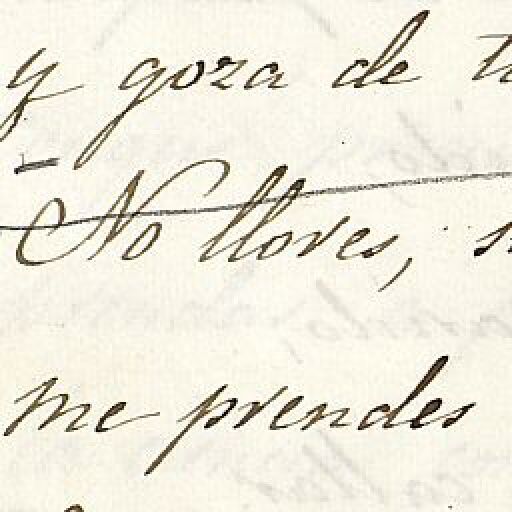 y goza de
No llores,
me prendes